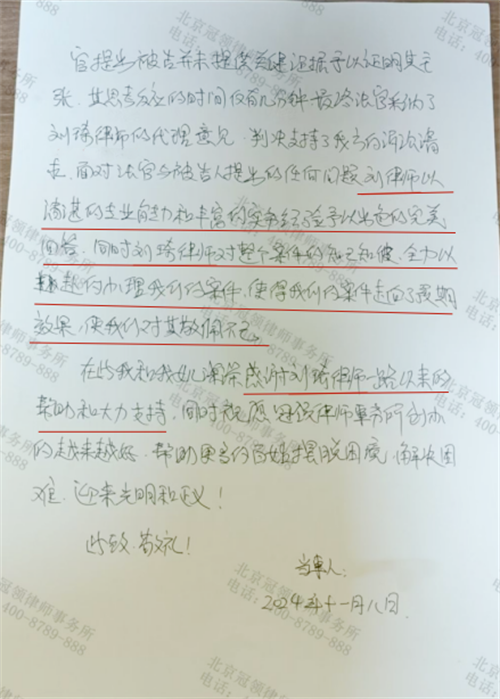 官提出被告并未提供关键证据予以证明其主
张，其思考应的时间仅有几分钟，最终法官采纳了
刘琦律师的代理意见，判决支持了我方的诉讼请
求。面对法官与被告人提出的任何问题刘律师以
精湛的专业能力和丰富的实务经验予以出色的完美
回答，同时刘琦律师对整个案件的知己知彼，全力以
赴的办理我们的案件，使得我们的案件走向了预期
效果，使我们对其敬佩不已。
在此我和我女儿深深感谢刘琦律师一路以来的
帮助和大力支持，同时祝愿冠领律师事务所创办
的越来越好，帮助更多的百姓摆脱困境，解决困
难，迎来光明和正义！
此致 敬礼！
当事人：
2024年十一月八日
北京冠领律师事务所
电话：400-8789-888